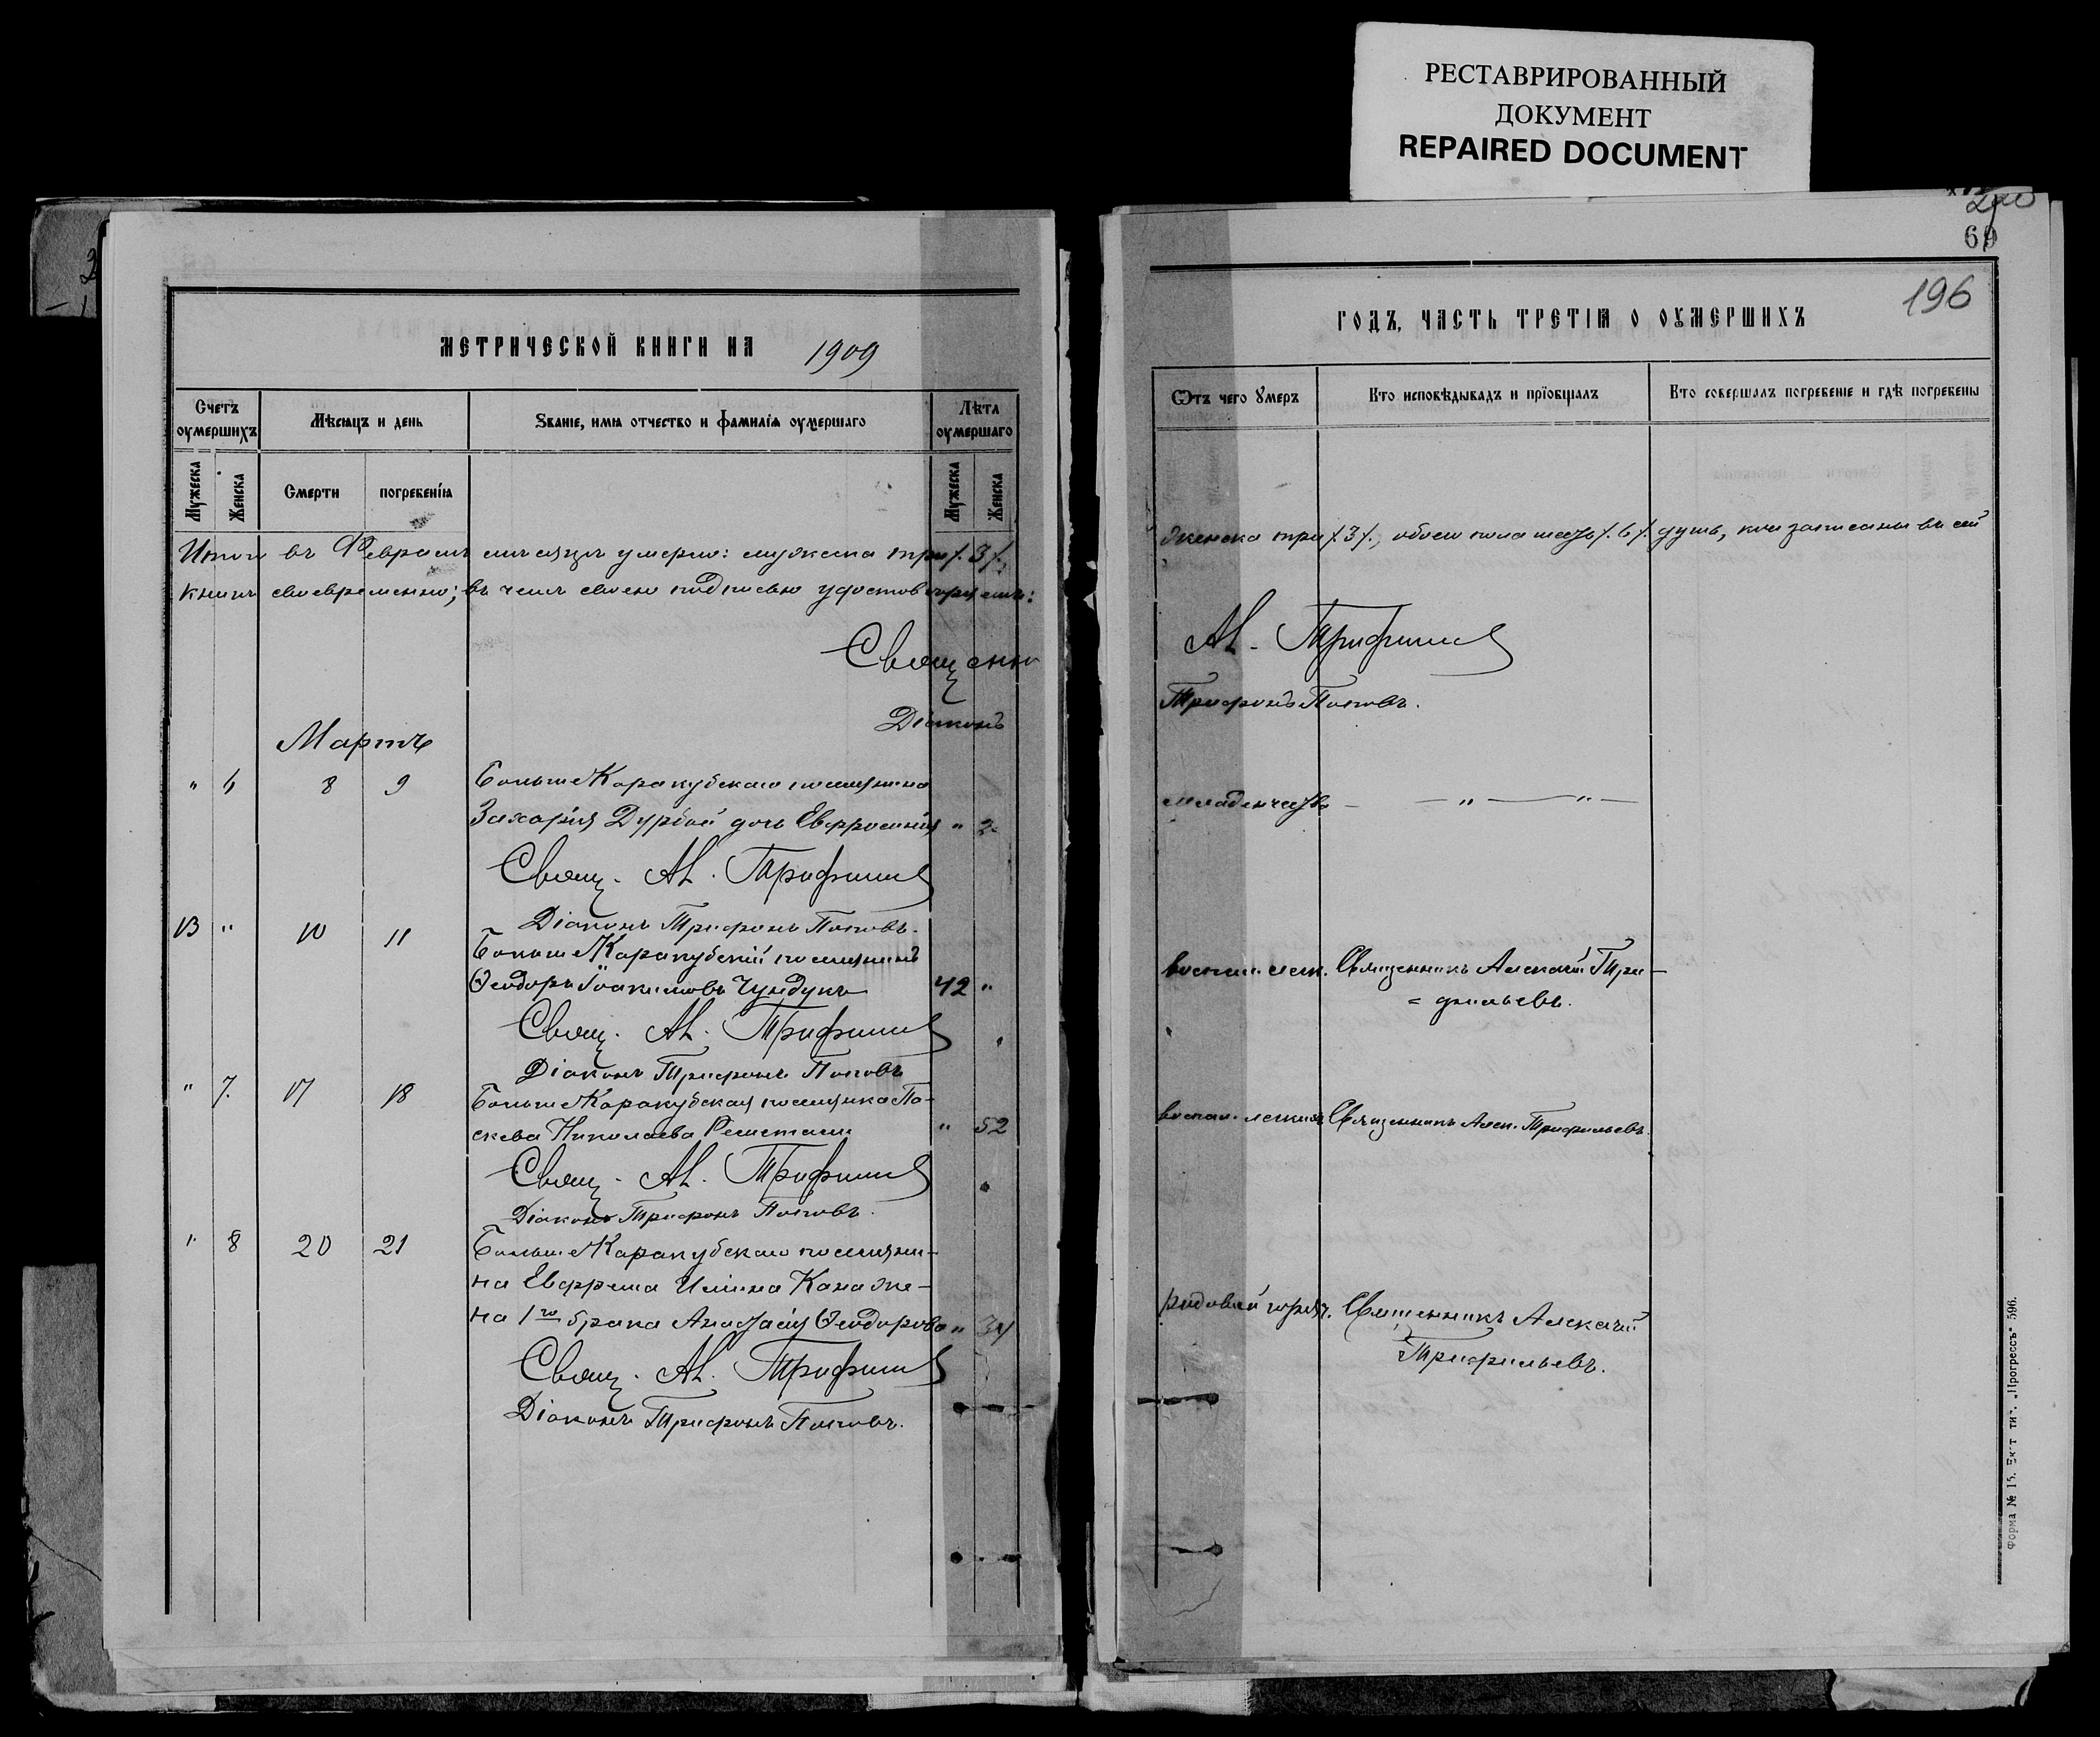 РЕСТАВРИРОВАННЫЙ
ДОКУМЕНТ
REPAIRED DOCUMENT
69
196
МЕТРИЧЕСКОЙ КНИГИ НА 1909
Счетъ оумершихъ
Мѣсяцъ и день
Званіе, имя отчество и фамилія оумершаго
Лѣта оумершаго
Мужеска
Женска
Смерти
погребенія
Мужеска
Женска
Итого въ Февралѣ мѣсяцѣ умерло: мужеска три /.3/.,
книгѣ своевременно; въ чемъ своею подписью удостовѣряемъ:
Священн
Діаконъ
Мартъ
" 6 8 9 Больше Каракубскаго поселянина
Захарія Дурбой дочь Евфросинія " 2
Свящ. Ал. Трифил
Діаконъ Трифонъ Поповъ.
13 " 10 11 Больше Каракубскій поселянинъ
Ѳеодоръ Іоакимовъ Чундукъ 42 "
Свящ. Ал. Трифил
Діаконъ Трифонъ Поповъ
" 7. 17 18 Больше Каракубская поселянка Па-
скева Николаева 52
Свящ. Ал. Трифил
Діаконъ Трифонъ Поповъ.
" 8 20 21 Больше Каракубскаго поселяни-
на Евфрема Ильина Кана же-
на 1го брака Анастасія Ѳеодорова "
Свящ. Ал. Трифил
Діаконъ Трифонъ Поповъ.
ГОДЪ, ЧАСТЬ ТРЕТІЯ О ОУМЕРШИХЪ
Ѿтъ чего Умеръ
Кто исповѣдывадъ и прїобщалъ
Кто совершалъ погребеніе и гдѣ погребены
женска три /.3/., обоего пола шесть /.6/. душъ, кои записаны въ сей
Ал. Трифил
Трифонъ Поповъ.
младенчества — — " — " —
воспал. легк. Священникъ Алексѣй Три-
= фильевъ.
воспал. легкихъ Священникъ Алек. Трифильевъ
родовой горяч. Священникъ Алексѣй
Трифильевъ.
Форма № 15. Екат. тип. „Прогрессъ" 596.